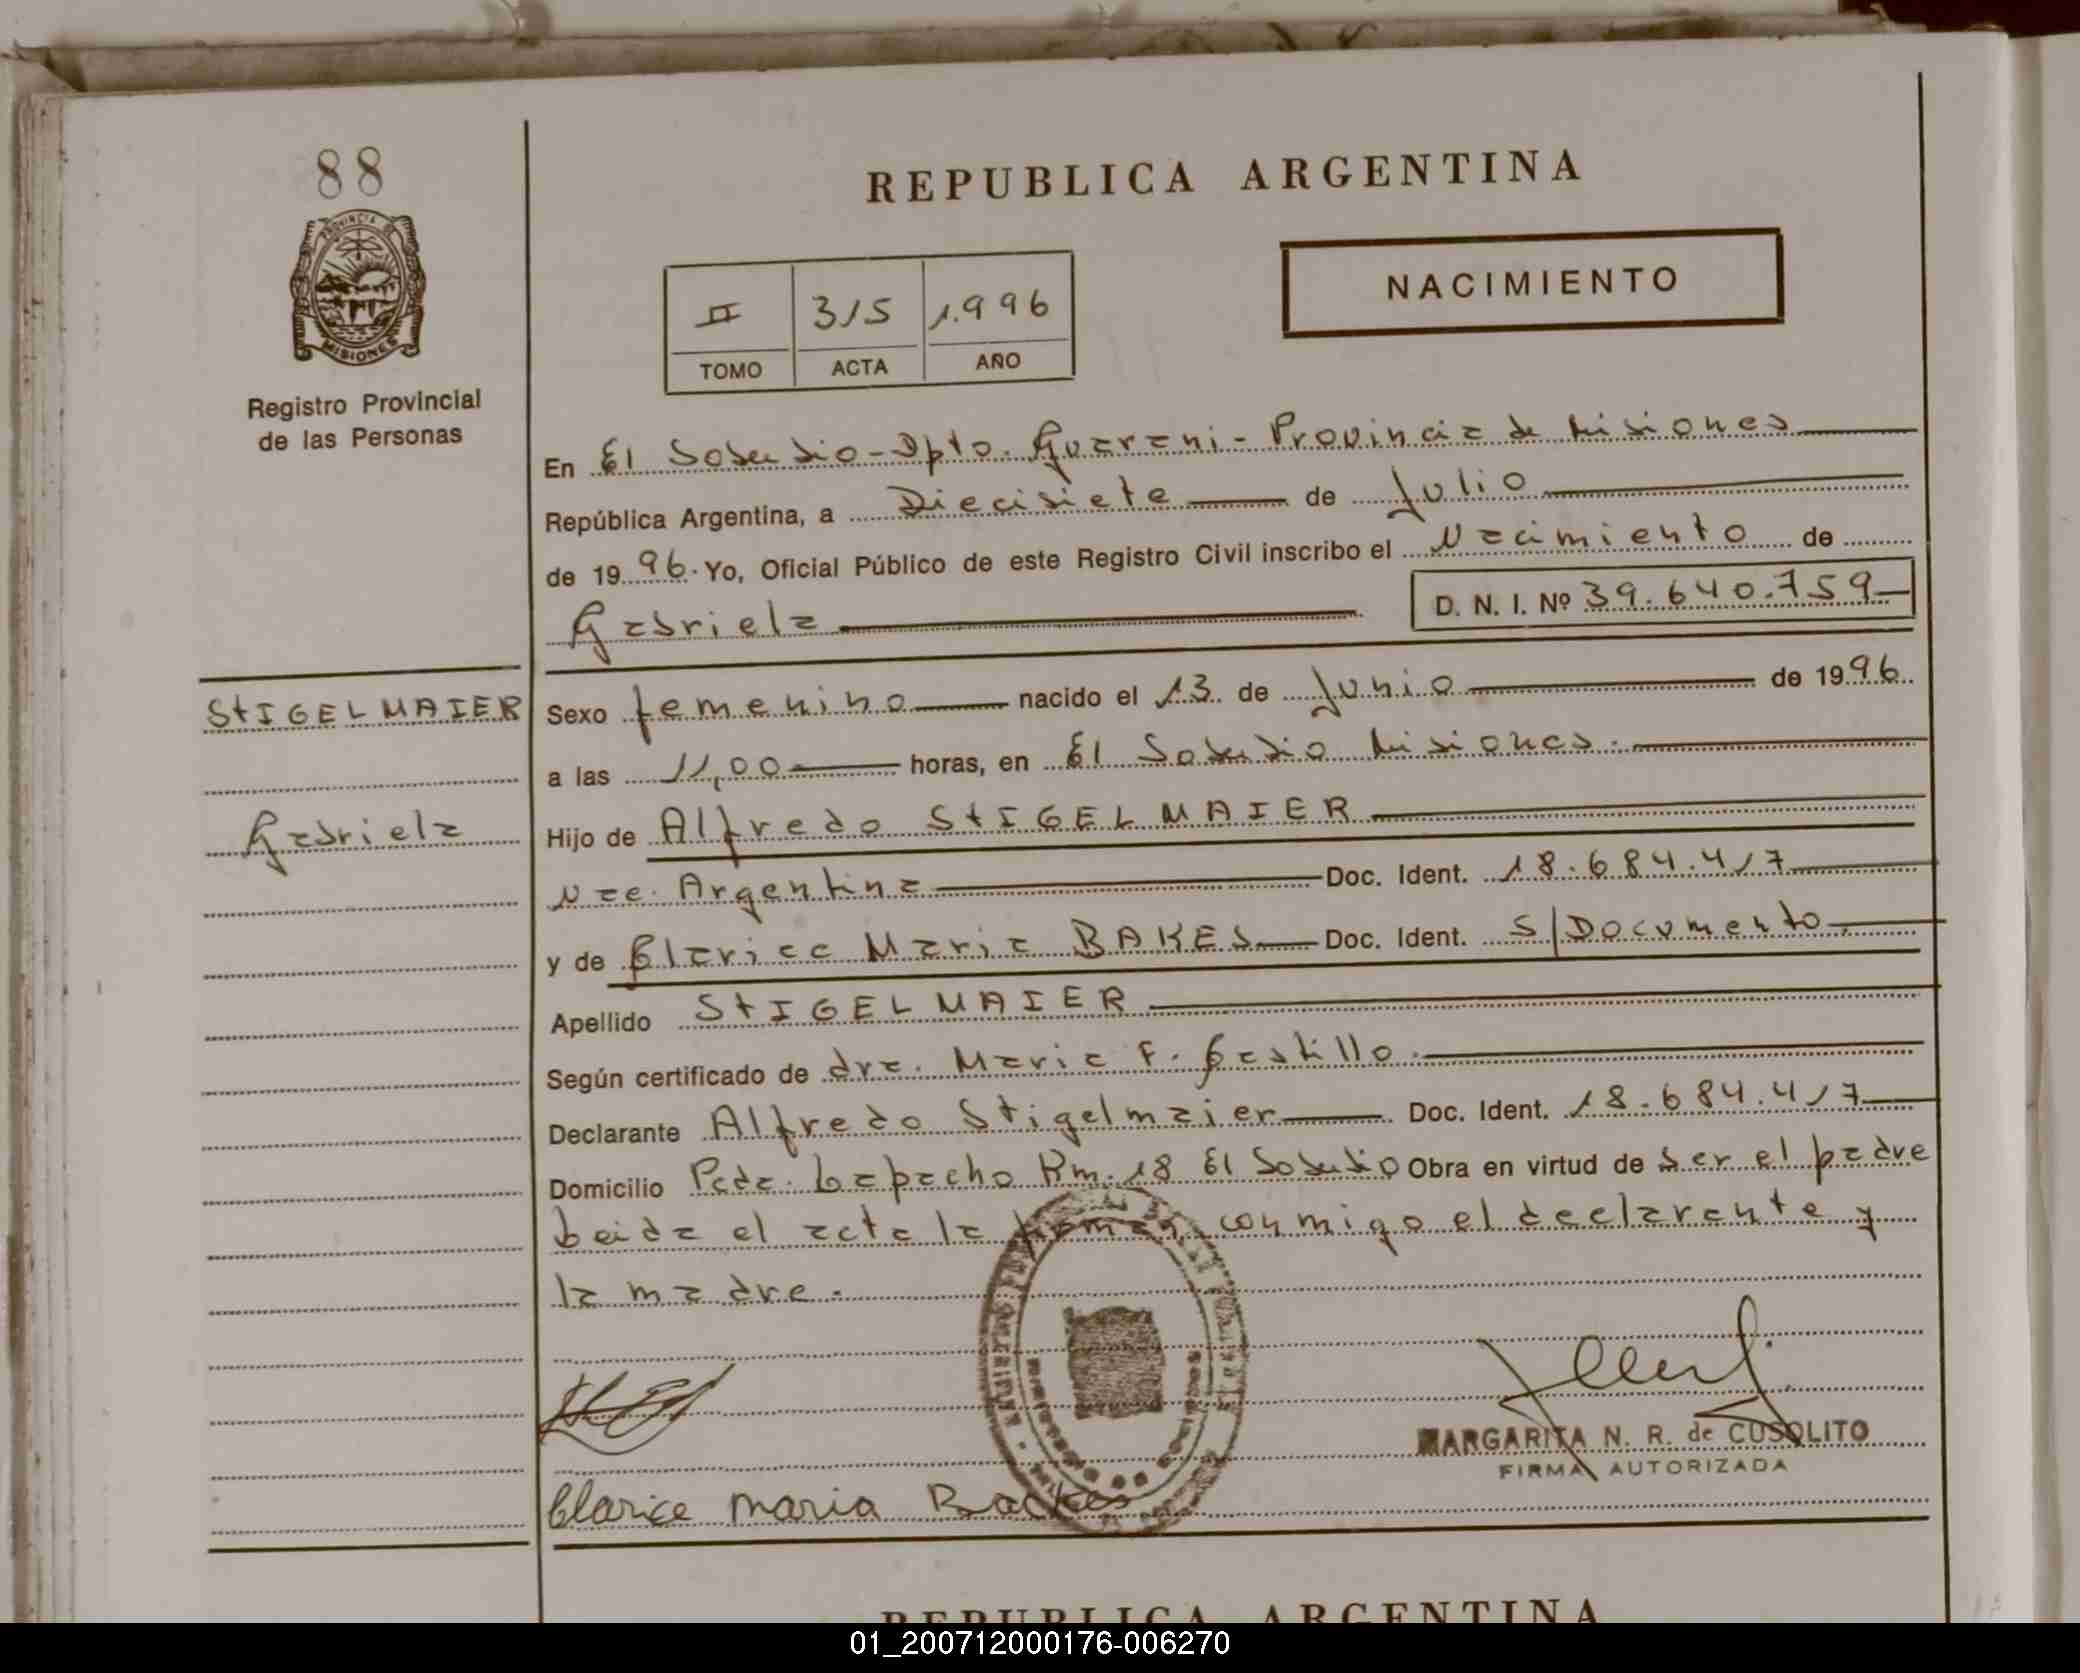 88
PROVINCIA DE
MISIONES
Registro Provincial
de las Personas
REPUBLICA ARGENTINA
NACIMIENTO
II 315 1.996
TOMO ACTA AÑO
En El Soberbio - Dpto. Guarani - Provincia de Misiones
República Argentina, a Diecisiete de Julio
de 1996. Yo, Oficial Público de este Registro Civil inscribo el Nacimiento de
Gabriela D. N. I. Nº 39.640.759
StIGELMAIER
Gabriela
Sexo femenino nacido el 13 de Junio de 1996
a las 11,00 horas, en El Soberbio Misiones.
Hijo de Alfredo StIGELMAIER
Nac. Argentina Doc. Ident. 18.684.417
y de Clarice Maria BAKES Doc. Ident. S/Documento
Apellido StIGELMAIER
Según certificado de dra. Maria F. Castillo.
Declarante Alfredo Stigelmaier Doc. Ident. 18.684.417
Domicilio Pcda. Lapacho Km. 18 El Soberbio Obra en virtud de ser el padre
Leida el acta la firman conmigo el declarante y
la madre.
MARGARITA N. R. de CUSOLITO
FIRMA AUTORIZADA
Clarice Maria Backes
REPUBLICA ARGENTINA
01_200712000176-006270